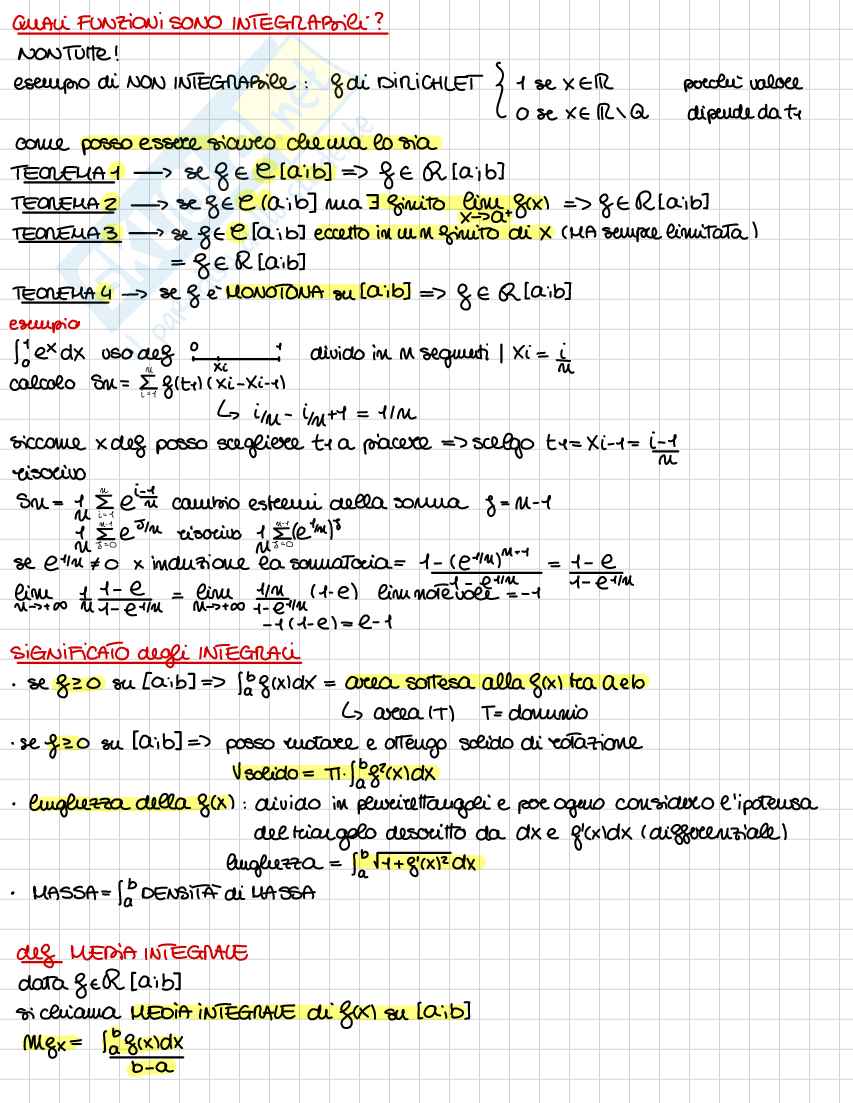 QUALI FUNZIONI SONO INTEGRABILI?
NON TUTTE!
esempio di NON INTEGRABILE : f di DIRICHLET { 1 se x∈ℝ perché valore
0 se x∈ℝ\Q dipende da t1
come posso essere sicuro che ma lo sia
TEOREMA 1 → se f∈C[a;b] => f∈R[a;b]
TEOREMA 2 → se f∈C(a;b] ma ∃ finito lim x→a⁺ f(x) => f∈R[a;b]
TEOREMA 3 → se f∈C[a;b] eccetto in un n finito di x (MA sempre limitata)
= f∈R[a;b]
TEOREMA 4 → se f è MONOTONA su [a;b] => f∈R[a;b]
esempio
∫₀¹ eˣ dx uso def 0 xi 1 divido in n segmenti | xi = i/n
calcolo Sn = Σ_{i=1}^{n} f(t1)(xi-xi-1)
↳ i/n - i/n+1 = 1/n
siccome x def posso scegliere t1 a piacere => scelgo t1 = xi-1 = i-1/n
riscrivo
Sn = 1/n Σ_{i=1}^{n} e^{i-1/n} cambio estremi della somma j = n-1
1/n Σ_{j=0}^{n-1} e^{j/n} riscrivo 1/n Σ_{j=0}^{n-1} (e^{1/n})^j
se e^{1/n} ≠ 0 x induzione la sommatoria = 1-(e^{1/n})^{n-1+1} / 1-e^{1/n} = 1-e / 1-e^{1/n}
lim n→+∞ 1/n 1-e / 1-e^{1/n} = lim n→+∞ 1/n / 1-e^{1/n} (1-e) lim notevole = -1
-1(1-e) = e-1
SIGNIFICATO degli INTEGRALI
· se f≥0 su [a;b] => ∫ₐᵇ f(x)dx = area sottesa alla f(x) tra a e b
↳ area (T) T= dominio
· se f≥0 su [a;b] => posso ruotare e ottengo solido di rotazione
Vsolido = π·∫ₐᵇ f²(x)dx
· lunghezza della f(x) : divido in plurirettangoli e per ognuno considero l'ipotenusa
del triangolo descritto da dx e f'(x)dx (differenziale)
lunghezza = ∫ₐᵇ √1+f'(x)² dx
· MASSA = ∫ₐᵇ DENSITÀ di MASSA
def MEDIA INTEGRALE
data f∈R[a;b]
si chiama MEDIA INTEGRALE di f(x) su [a;b]
Mfx = ∫ₐᵇ f(x)dx / b-a